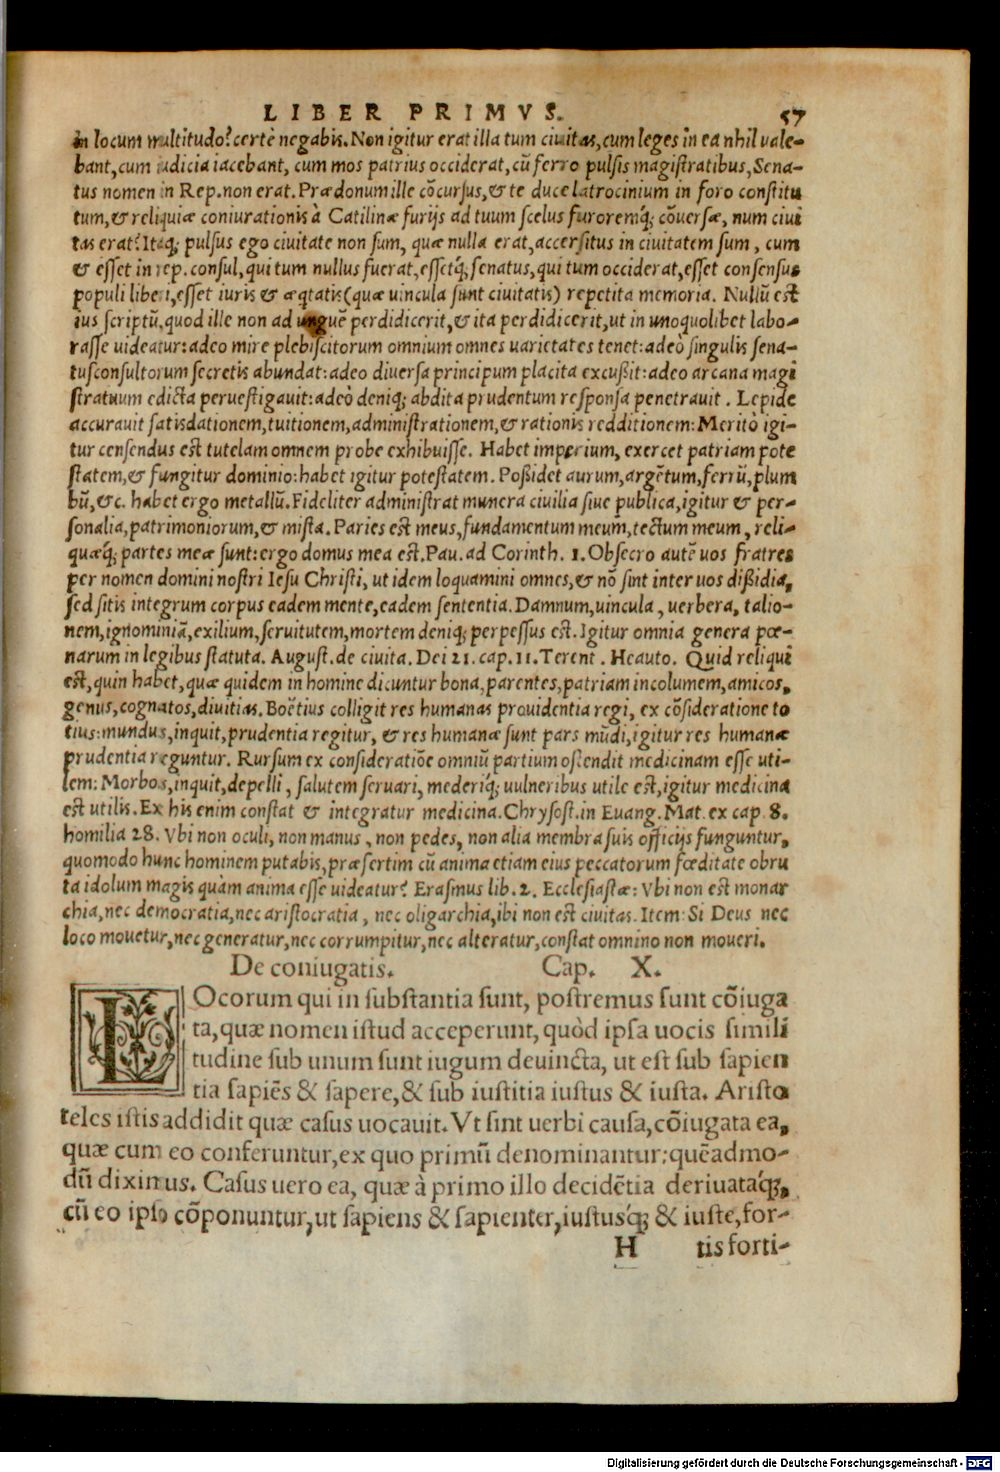 LIBER PRIMVS. 57
in locum multitudo? certè negabis. Non igitur erat illa tum ciuitas, cum leges in ea nhil uale-
bant, cum iudicia iacebant, cum mos patrius occiderat, cũ ferro pulsis magistratibus, Sena-
tus nomen in Rep. non erat. Prædonum ille cõcursus, & te duce latrocinium in foro constitu
tum, & reliquiæ coniurationis à Catilinæ furijs ad tuum scelus furoremq́; cõuersæ, num ciui
tas erat? Itaq; pulsus ego ciuitate non sum, quæ nulla erat, accersitus in ciuitatem sum, cum
& esset in rep. consul, qui tum nullus fuerat, essetq́; senatus, qui tum occiderat, esset consensus
populi liberi, esset iuris & æqtatis (quæ uincula sunt ciuitatis) repetita memoria. Nullũ est
ius scriptũ, quod ille non ad unguẽ perdidicerit, & ita perdidicerit, ut in unoquolibet labo-
rasse uideatur: adeo mire plebiscitorum omnium omnes uarietates tenet: adeò singulis sena-
tusconsultorum secretis abundat: adeo diuersa principum placita excußit: adeo arcana magi
stratuum edicta peruestigauit: adeò deniq; abdita prudentum responsa penetrauit. Lepide
accurauit satisdationem, tuitionem, administrationem, & rationis redditionem: Meritò igi-
tur censendus est tutelam omnem probe exhibuisse. Habet imperium, exercet patriam pote
statem, & fungitur dominio: habet igitur potestatem. Poßidet aurum, argẽtum, ferrũ, plum
bũ, &c. habet ergo metallũ. Fideliter administrat munera ciuilia siue publica, igitur & per-
sonalia, patrimoniorum, & mista. Paries est meus, fundamentum meum, tectum meum, reli-
quæq́; partes meæ sunt: ergo domus mea est. Pau. ad Corinth. 1. Obsecro autẽ uos fratres
per nomen domini nostri Iesu Christi, ut idem loquamini omnes, & nõ sint inter uos dißidia,
sed sitis integrum corpus eadem mente, eadem sententia. Damnum, uincula, uerbera, talio-
nem, ignominiã, exilium, seruitutem, mortem deniq; perpessus est. Igitur omnia genera pœ-
narum in legibus statuta. August. de ciuita. Dei 21. cap. 11. Terent. Heauto. Quid reliqui
est, quin habet, quæ quidem in homine dicuntur bona, parentes, patriam incolumem, amicos,
genus, cognatos, diuitias. Boëtius colligit res humanas prouidentia regi, ex cõsideratione to
tius: mundus, inquit, prudentia regitur, & res humanæ sunt pars mũdi, igitur res humanæ
prudentia reguntur. Rursum ex consideratiõe omniũ partium ostendit medicinam esse uti-
lem: Morbos, inquit, depelli, salutem seruari, mederiq́; uulneribus utile est, igitur medicina
est utilis. Ex his enim constat & integratur medicina. Chrysost. in Euang. Mat. ex cap. 8.
homilia 28. Vbi non oculi, non manus, non pedes, non alia membra suis officijs funguntur,
quomodo hunc hominem putabis, præsertim cũ anima etiam eius peccatorum fœditate obru
ta idolum magis quàm anima esse uideatur? Erasmus lib. 2. Ecclesiastæ: Vbi non est monar
chia, nec democratia, nec aristocratia, nec oligarchia, ibi non est ciuitas. Item: Si Deus nec
loco mouetur, nec generatur, nec corrumpitur, nec alteratur, constat omnino non moueri.
De coniugatis. Cap. X.
LOcorum qui in substantia sunt, postremus sunt cõiuga
ta, quæ nomen istud acceperunt, quòd ipsa uocis simili
tudine sub unum sunt iugum deuincta, ut est sub sapien
tia sapiẽs & sapere, & sub iustitia iustus & iusta. Aristo
teles istis addidit quæ casus uocauit. Vt sint uerbi causa, cõiugata ea,
quæ cum eo conferuntur, ex quo primũ denominantur: quẽadmo-
dũ diximus. Casus uero ea, quæ à primo illo decidẽtia deriuataq́;,
cũ eo ipso cõponuntur, ut sapiens & sapienter, iustusq́; & iuste, for-
H tis forti-
Digitalisierung gefördert durch die Deutsche Forschungsgemeinschaft - DFG